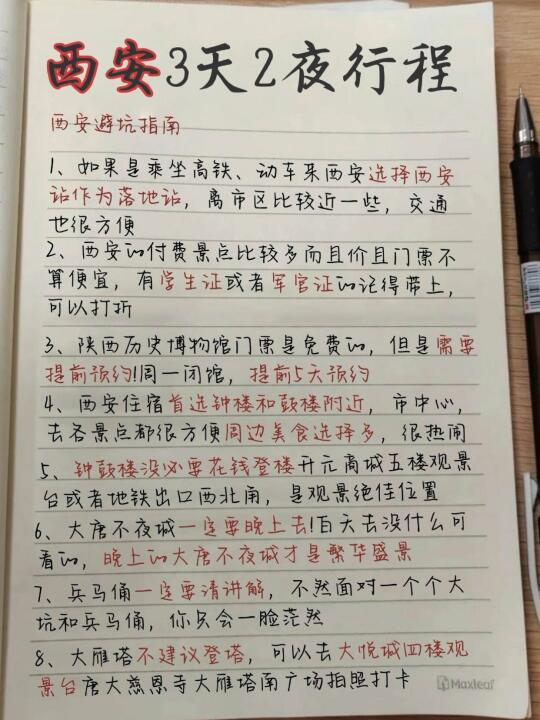 西安3天2夜行程
西安避坑指南
1、如果是乘坐高铁、动车来西安选择西安
站作为落地站，离市区比较近一些，交通
也很方便
2、西安的付费景点比较多而且价且门票不
算便宜，有学生证或者军官证的记得带上，
可以打折
3、陕西历史博物馆门票是免费的，但是需要
提前预约!周一闭馆，提前5天预约
4、西安住宿首选钟楼和鼓楼附近，市中心，
去各景点都很方便周边美食选择多，很热闹
5、钟鼓楼没必要花钱登楼开元商城五楼观景
台或者地铁出口西北角，是观景绝佳位置
6、大唐不夜城一定要晚上去!白天去没什么可
看的，晚上的大唐不夜城才是繁华盛景
7、兵马俑一定要请讲解，不然面对一个个大
坑和兵马俑，你只会一脸茫然
8、大雁塔不建议登塔，可以去大悦城四楼观
景台唐大慈恩寺大雁塔南广场拍照打卡
Maxleaf